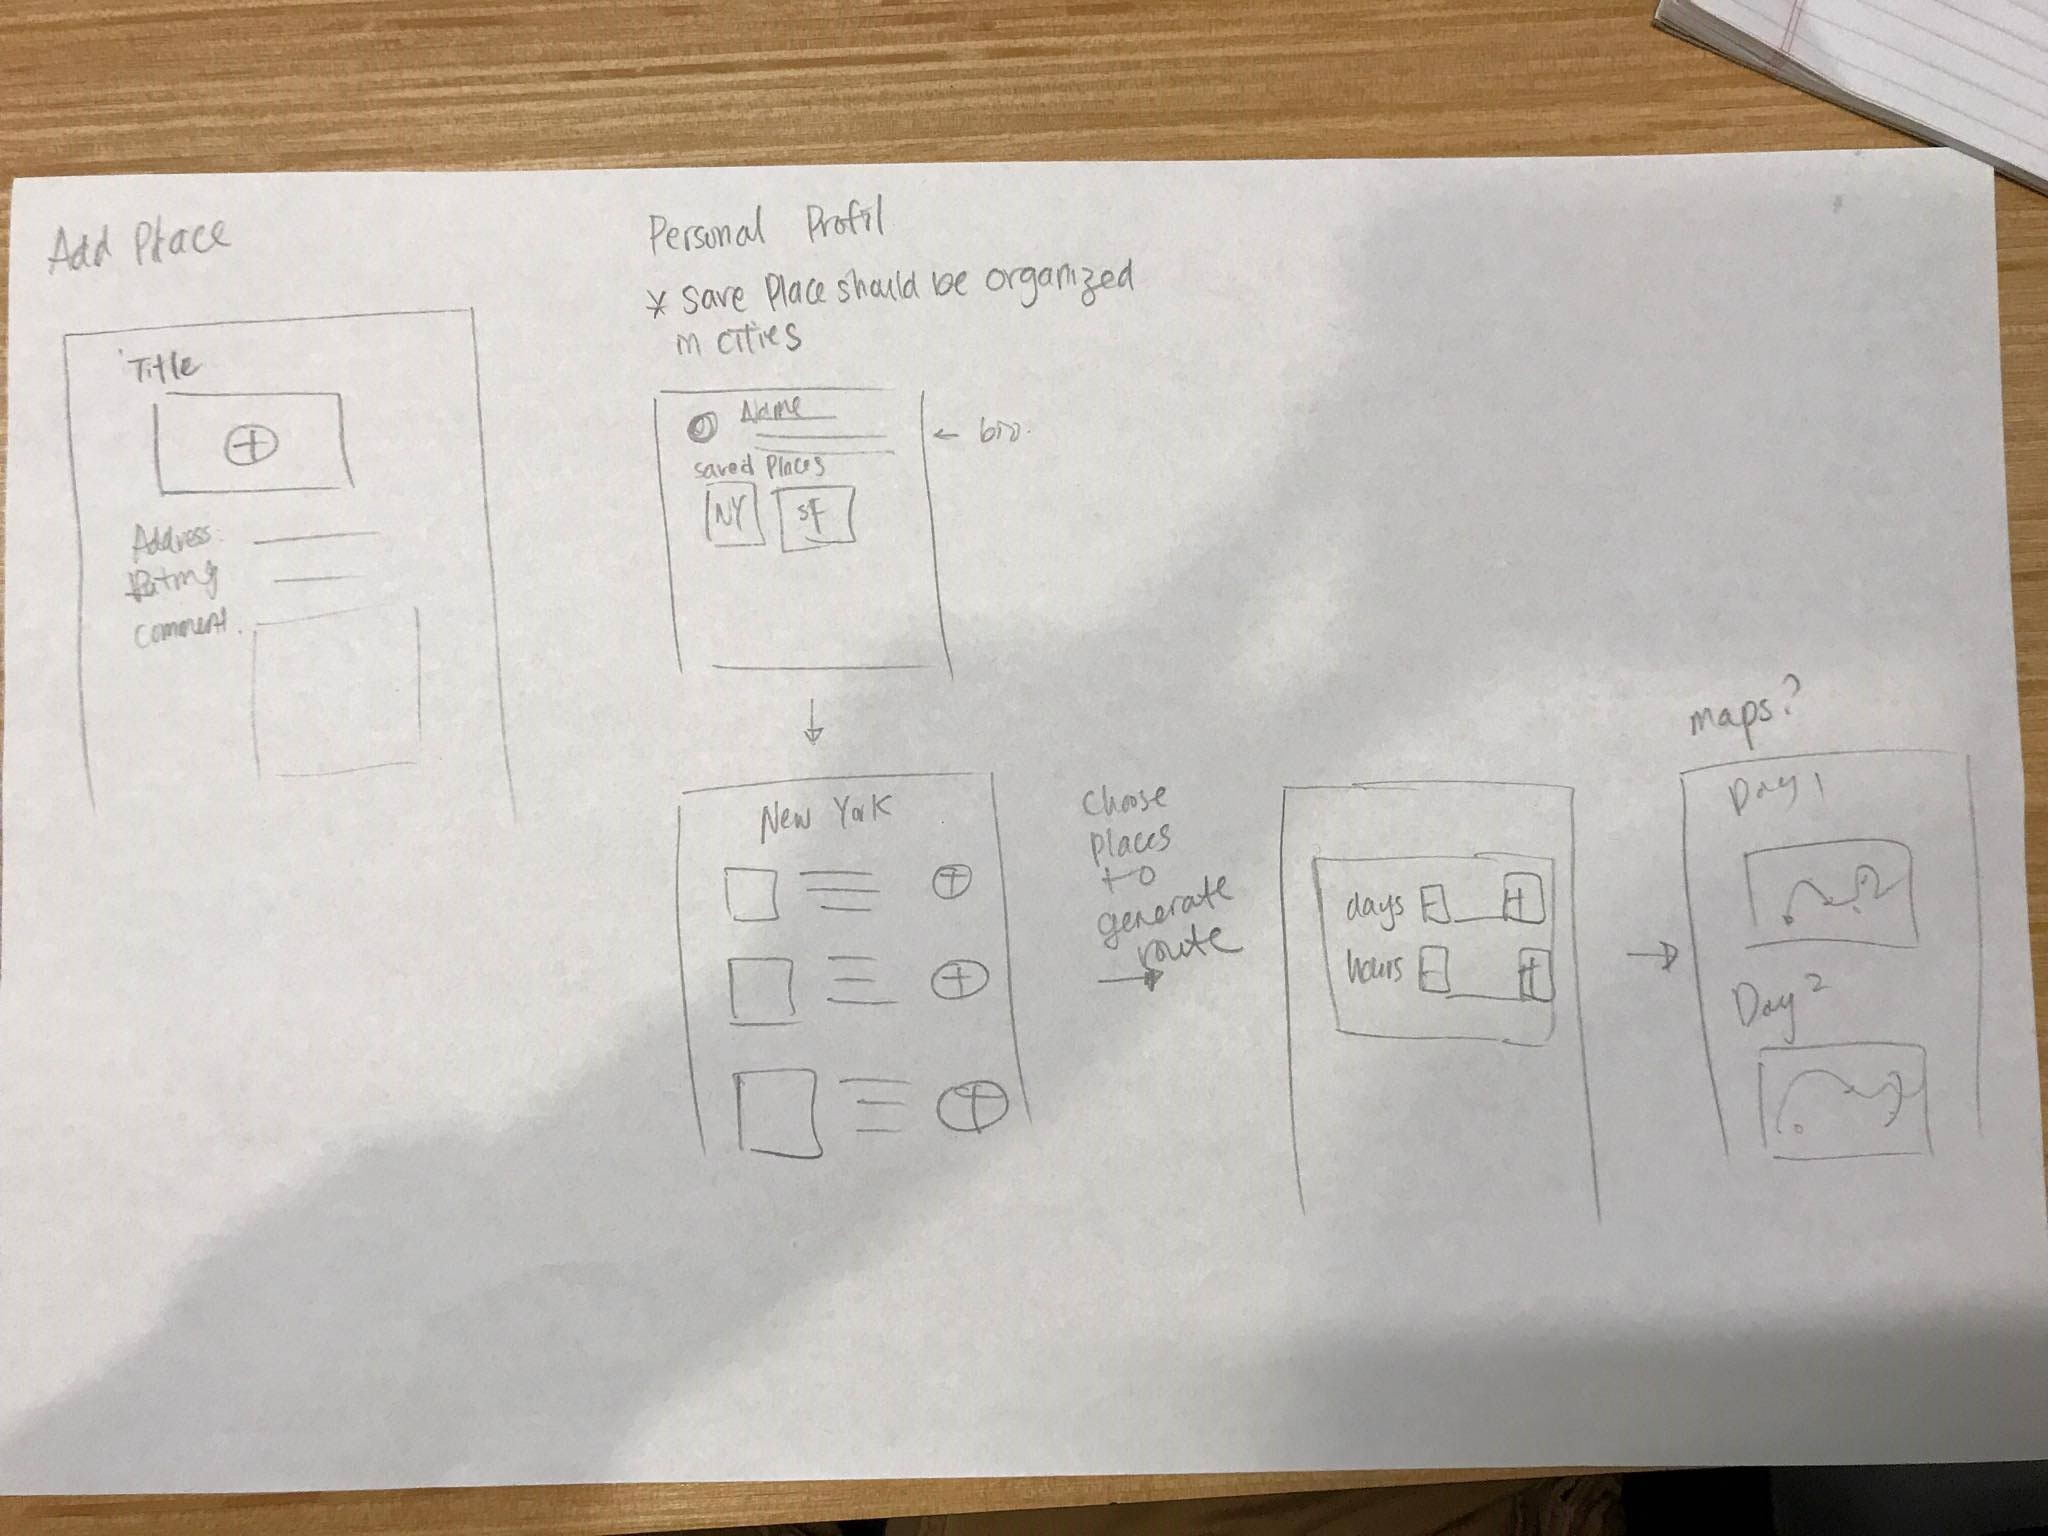 Add Place
Title
Address
Rating
Comment.
Personal Profil
* Save Place should be organized
in cities
Name
← bio.
Saved Places
NY
SF
New York
Choose
places
to
generate
route
days - +
hours - +
maps?
Day 1
Day 2